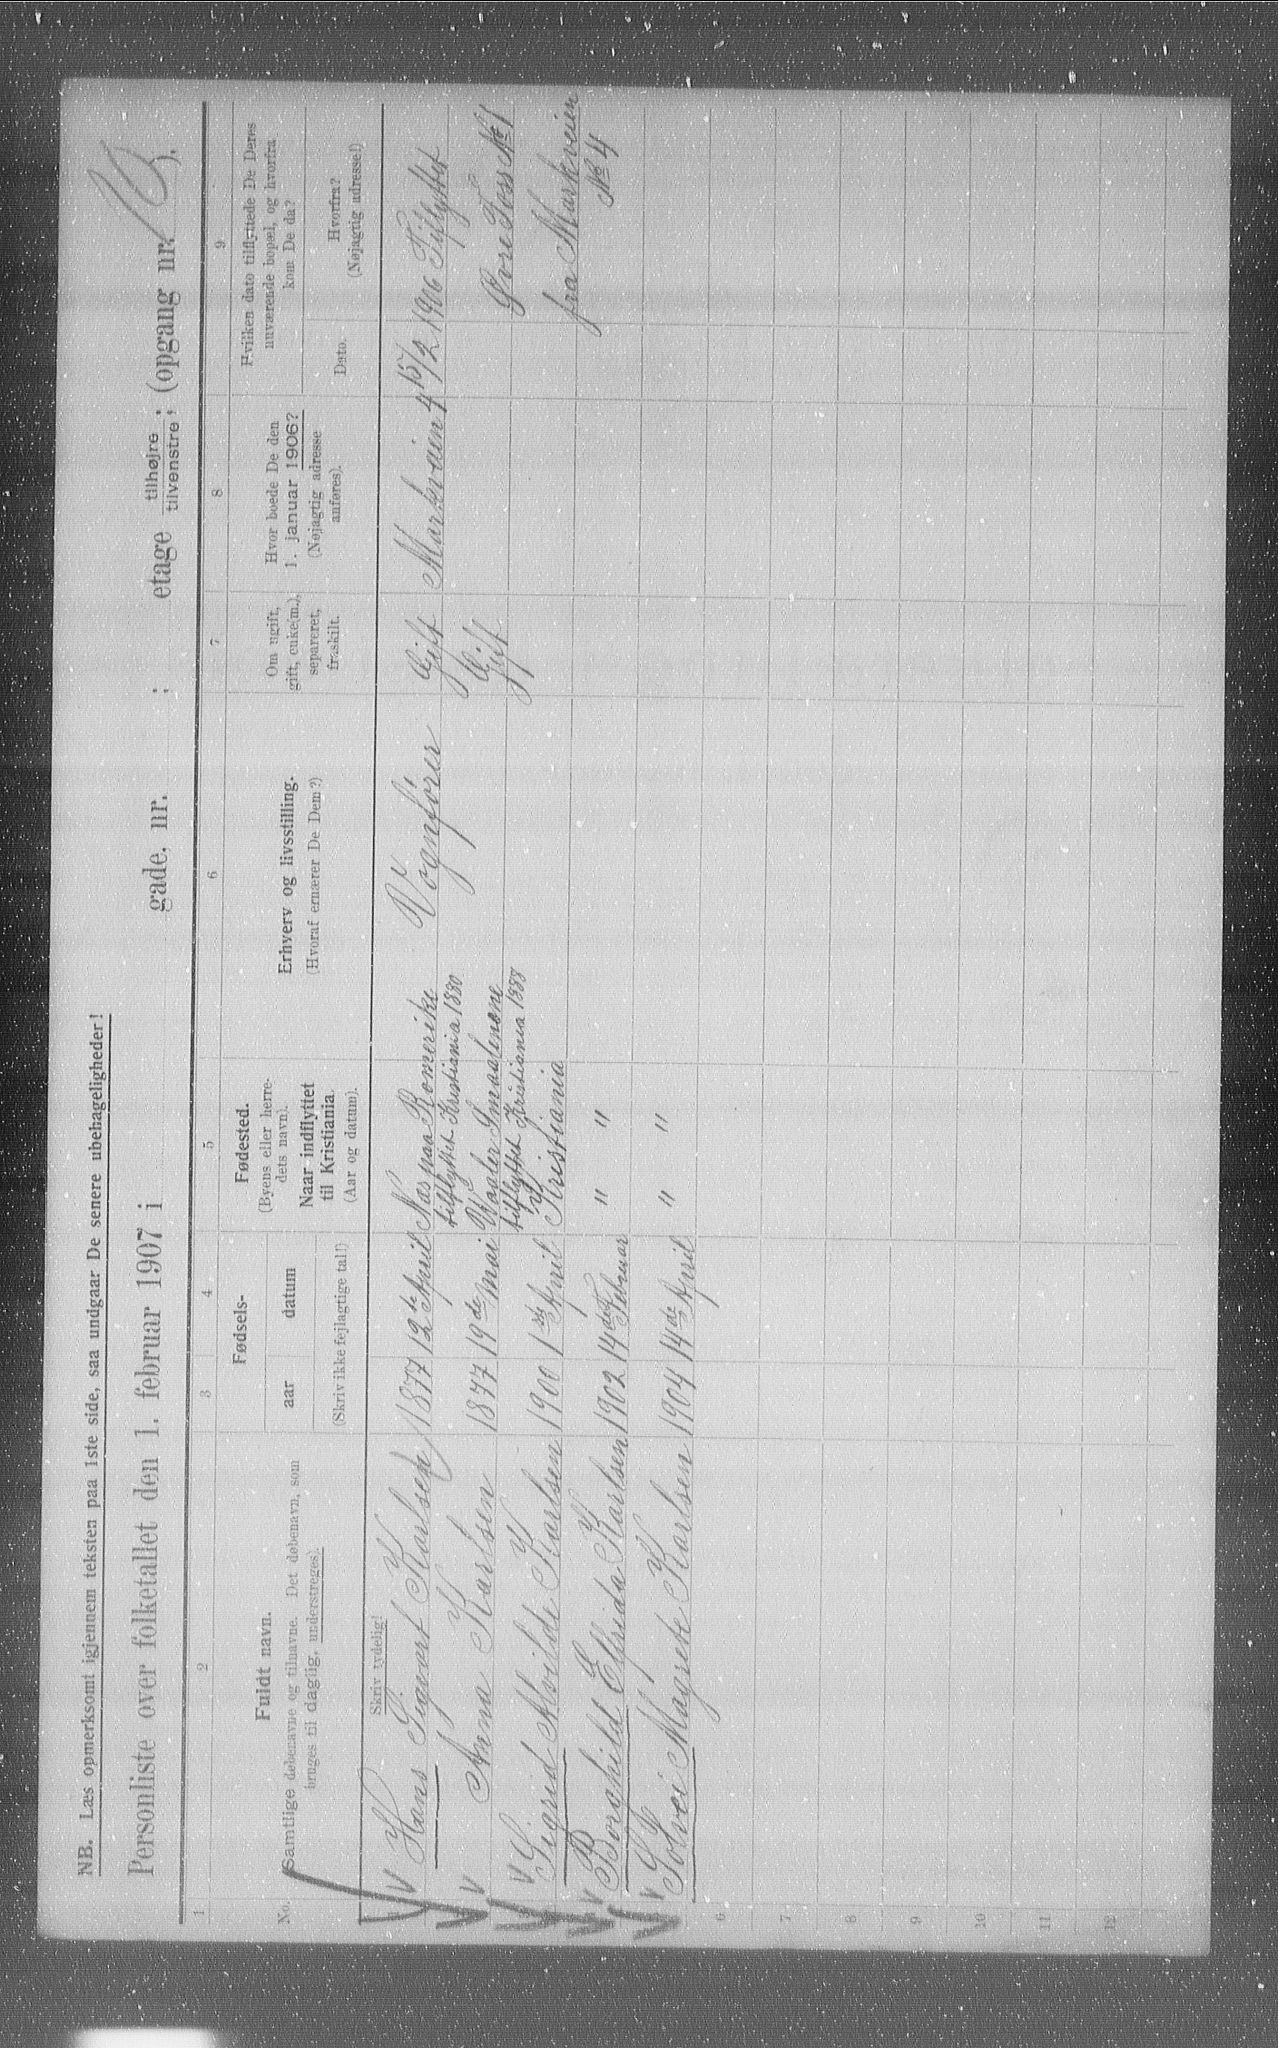 NB. Læs opmerksomt igjennem teksten paa 1ste side, saa undgaar De senere ubehageligheder!
Personliste over folketallet den 1. februar 1907 i gade, nr. ; etage tilhøjre tilvenstre; (opgang nr. ).
1 2 3 4 5 6 7 8 9
No.
Fuldt navn.
Samtlige døbenavne og tilnavne. Det døbenavn, som
bruges til daglig, understreges).
Skriv tydelig!
Fødsels-
aar datum
(Skriv ikke fejlagtige tal!)
Fødested.
(Byens eller herre-
dets navn).
Naar indflyttet
til Kristiania.
(Aar og datum).
Erhverv og livsstilling.
(Hvoraf ernærer De Dem?)
Om ugift,
gift, enke(m.),
separeret,
fraskilt.
Hvor boede De den
1. januar 1906?
(Nøjagtig adresse
anføres).
Hvilken dato tilflyttede De Deres
nuværende bopæl, og hvorfra
kom De da?
Dato.
Hvorfra?
(Nøjagtig adresse!)
Hans Sigvart Karlsen 1877 12te April Næs paa Romerike Vognfører Gift Markveien 4 15/2 1906 Tilflyttet
tilflyttet Kristiania 1880
Anna Karlsen 1877 19de mai Vaaler Smaalenene Gift Øvre Foss No 1
tilflyttet Kristiania 1888
Sigrid Alvilde Karlsen 1900 1ste April Kristiania fra Markveien
No 4
Borghild Elfrida Karlsen 1902 14de Februar " "
Solvei Magrete Karlsen 1904 14de April " "
6
7
8
9
10
11
12